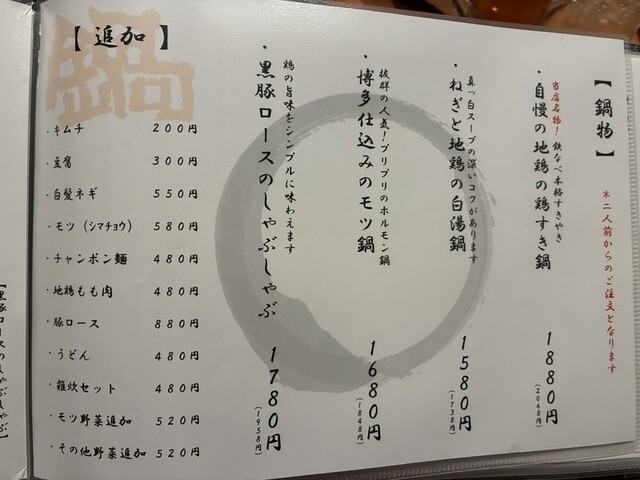 【鍋物】
＊二人前からのご注文となります
当店名物！鉄なべ本格すきやき
・自慢の地鶏の鶏すき鍋
1880円
(2068円)
真っ白スープの深いコクがあります
・ねぎと地鶏の白湯鍋
1580円
(1738円)
抜群の人気！プリプリのホルモン鍋
・博多仕込みのモツ鍋
1680円
(1848円)
鶏の旨味をシンプルに味わえます
・黒豚ロースのしゃぶしゃぶ
1780円
(1958円)
鍋
【追加】
・キムチ 200円
・豆腐 300円
・白髪ネギ 550円
・モツ（シマチョウ） 580円
・チャンポン麺 480円
・地鶏もも肉 480円
・豚ロース 880円
・うどん 480円
・雑炊セット 480円
・モツ野菜追加 520円
・その他野菜追加 520円
【黒豚ロースのしゃぶしゃぶ】